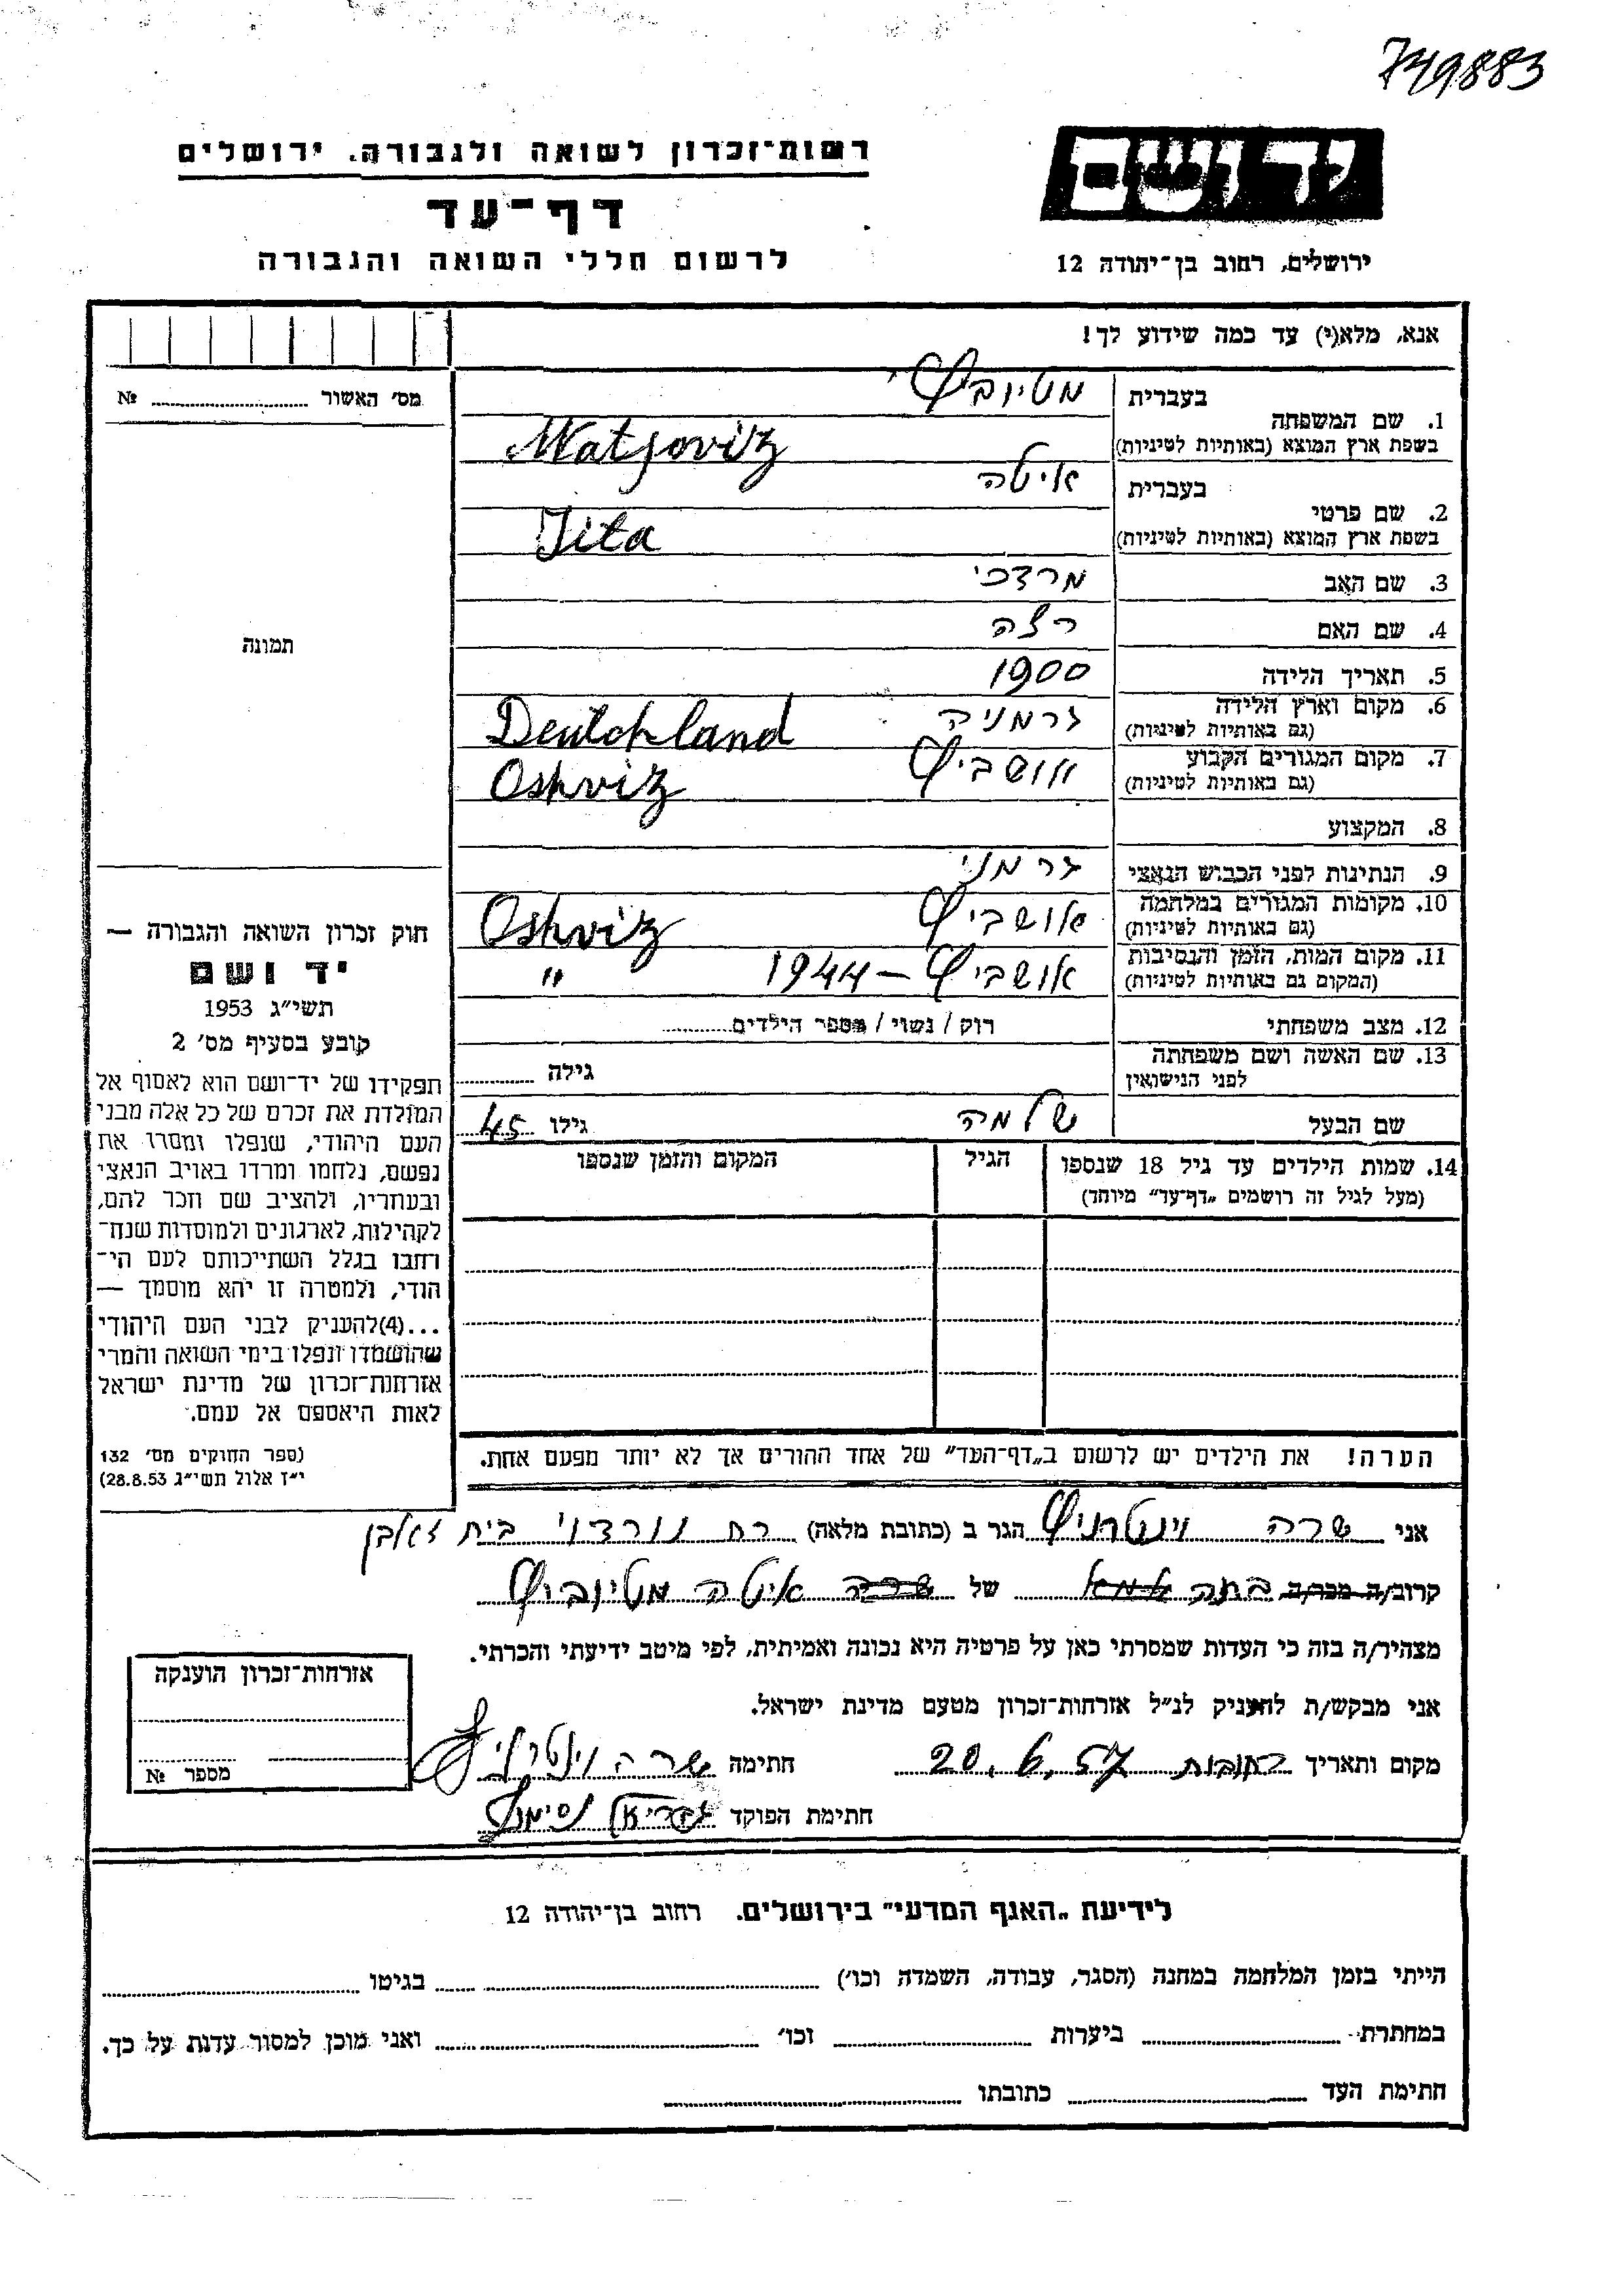 749883
רשות־זכרון לשואה ולגבורה. ירושלים
יד ושם
דף־עד
לרשום חללי השואה והגבורה
ירושלים, רחוב בן־יהודה 12
אנא, מלא(י) עד כמה שידוע לך!
מס׳ האשור № 
1. שם המשפחה
בעברית מטיוביץ
בשפת ארץ המוצא (באותיות לטיניות) Matjoviz
2. שם פרטי
בעברית איטה
בשפת ארץ המוצא (באותיות לטיניות) Jita
3. שם האב מרדכי
4. שם האם רצה
5. תאריך הלידה 1900
6. מקום וארץ הלידה גרמניה Deutchland
(גם באותיות לטיניות)
7. מקום המגורים הקבוע אושביץ Oshviz
(גם באותיות לטיניות)
8. המקצוע
9. הנתינות לפני הכבוש הנאצי גרמני
10. מקומות המגורים במלחמה אושביץ Oshviz
(גם באותיות לטיניות)
11. מקום המות, הזמן והנסיבות אושביץ – 1944 "
(המקום גם באותיות לטיניות)
12. מצב משפחתי רוק / נשוי / מספר הילדים
13. שם האשה ושם משפחתה
לפני הנישואין גילה
שם הבעל שלמה גילו 45
14. שמות הילדים עד גיל 18 שנספו הגיל המקום והזמן שנספו
(מעל לגיל זה רושמים „דף־עד״ מיוחד)
הערה! את הילדים יש לרשום ב„דף־העד״ של אחד ההורים אך לא יותר מפעם אחת.
תמונה
חוק זכרון השואה והגבורה —
יד ושם
תשי״ג 1953
קובע בסעיף מס׳ 2
תפקידו של יד־ושם הוא לאסוף אל
המולדת את זכרם של כל אלה מבני
העם היהודי, שנפלו ומסרו את
נפשם, נלחמו ומרדו באויב הנאצי
ובעוזריו, ולהציב שם וזכר להם,
לקהילות, לארגונים ולמוסדות שנח־
רחבו בגלל השתייכותם לעם הי־
הודי, ולמטרה זו יהא מוסמך —
...(4)להעניק לבני העם היהודי
שהושמדו ונפלו בימי השואה והמרי
אזרחות־זכרון של מדינת ישראל
לאות היאספם אל עמם.
(ספר החוקים מס׳ 132
י״ז אלול תשי״ג 28.8.53)
אני שרה וינטרניץ הגר ב (כתובת מלאה) רח נורדוי בית זאלבן
קרוב/ה מכר/ה בתה של איטה מטיוביץ
מצהיר/ה בזה כי העדות שמסרתי כאן על פרטיה היא נכונה ואמיתית, לפי מיטב ידיעתי והכרתי.
אני מבקש/ת להעניק לנ״ל אזרחות־זכרון מטעם מדינת ישראל.
מקום ותאריך רחובות 20.6.57 חתימה שרה וינטרניץ
חתימת הפוקד גבריאל
אזרחות־זכרון הוענקה
מספר №
לידיעת „האגף המדעי״ בירושלים. רחוב בן־יהודה 12
הייתי בזמן המלחמה במחנה (הסגר, עבודה, השמדה וכו׳) בגיטו
במחתרת ביערות וכו׳ ואני מוכן למסור עדות על כך.
חתימת העד כתובתו